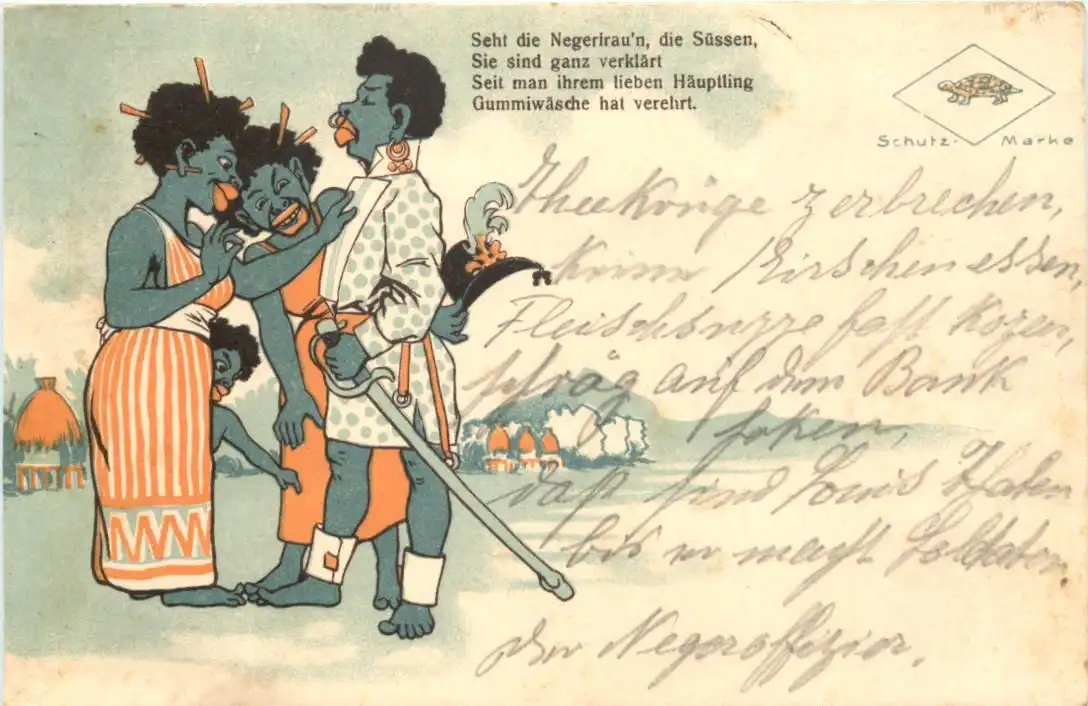 Seht die Negerfrau'n, die Süssen,
Sie sind ganz verklärt
Seit man ihrem lieben Häuptling
Gummiwäsche hat verehrt.
Schutz-Marke
zerbrechen,
Kirschen essen,
Fleischsuppe fast
schräg auf dem Bank
daß sind Louis Thaten
bis er
Der Negeroffizier.